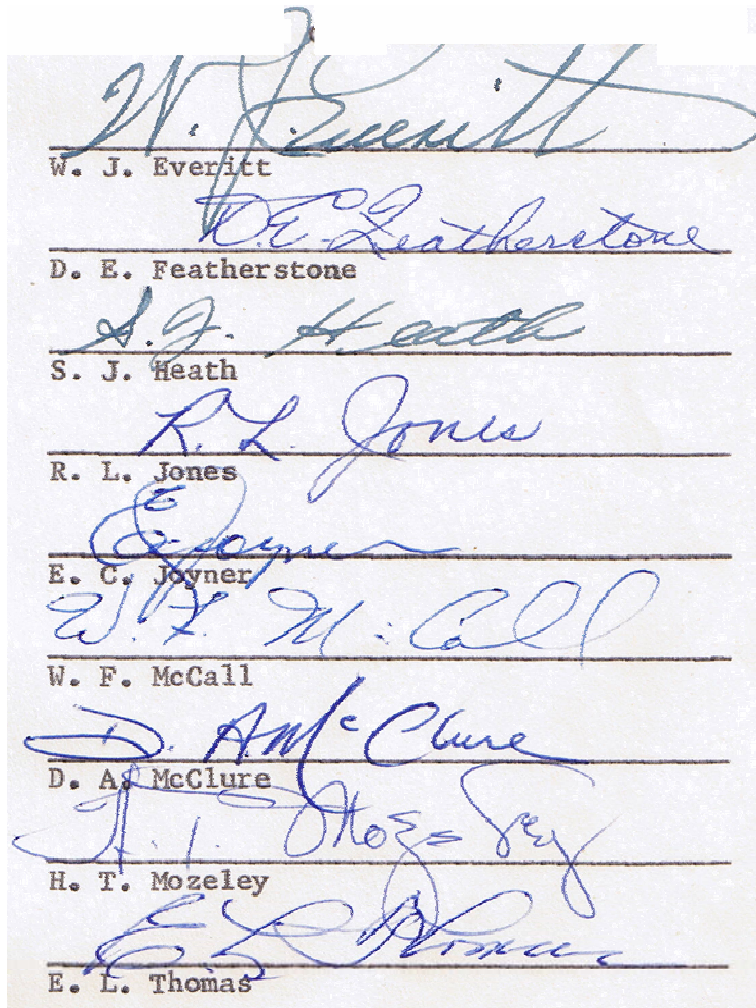 W. J. Everitt
W. J. Everitt
D. E. Featherstone
D. E. Featherstone
S. J. Heath
S. J. Heath
R. L. Jones
R. L. Jones
E C Joyner
E. C. Joyner
W. F. McCall
W. F. McCall
D. A McClure
D. A. McClure
H. T. Mozeley
H. T. Mozeley
E L Thomas
E. L. Thomas